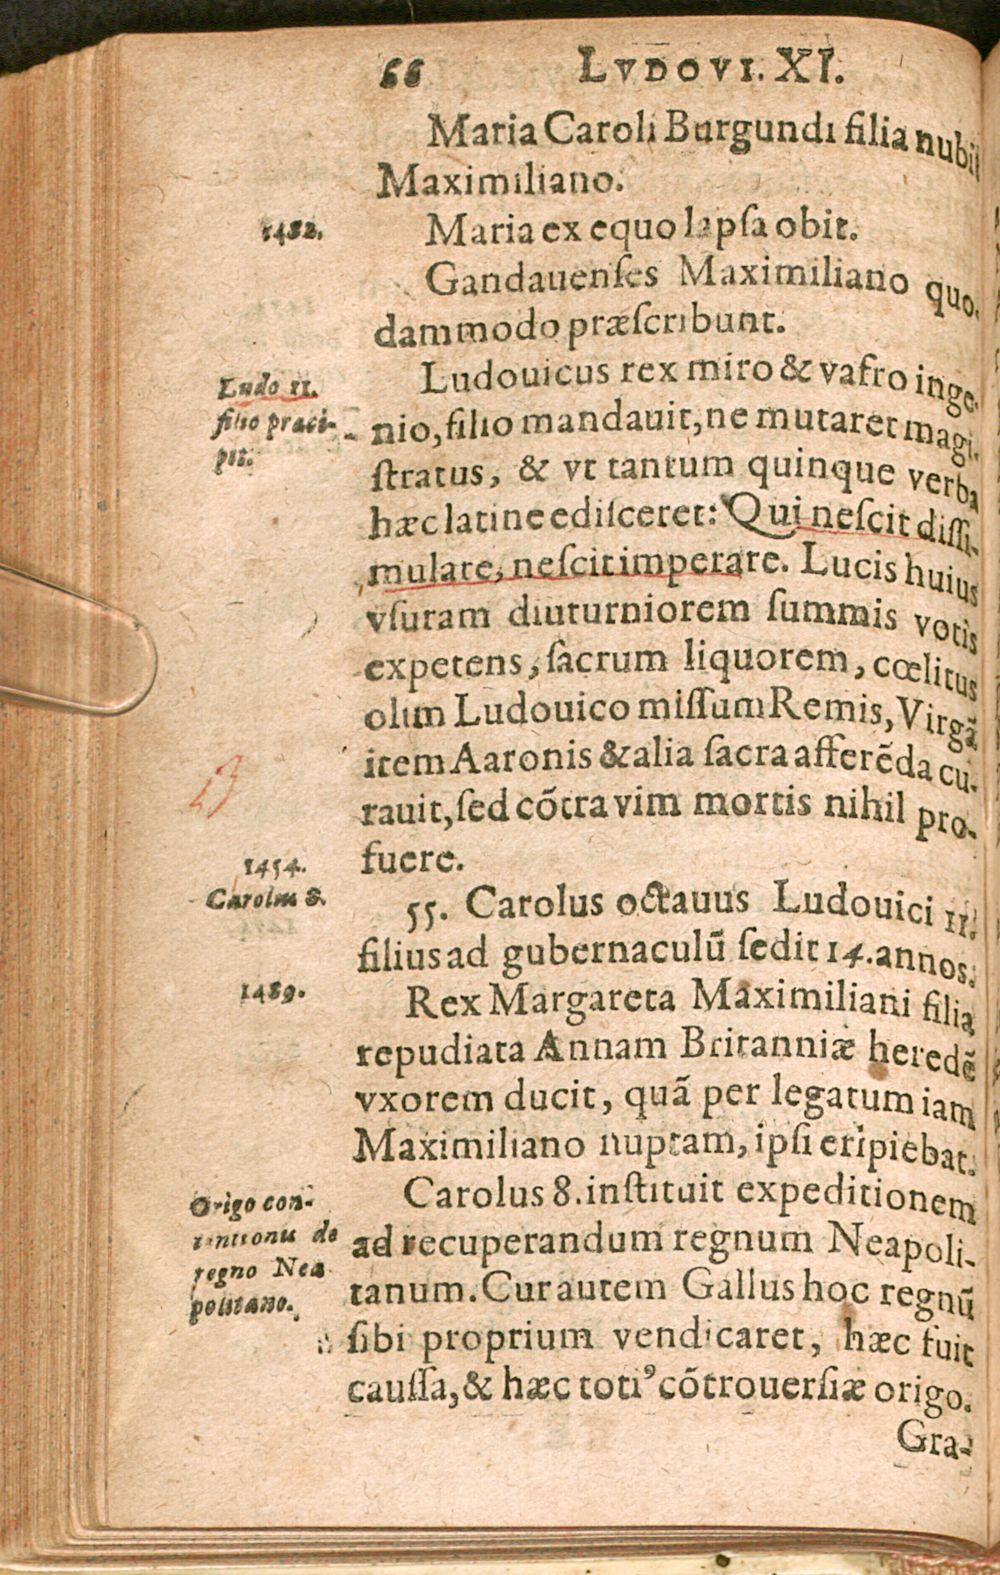 66 LVDOVI. XI.
Maria Caroli Burgundi filia nubit
Maximiliano.
1482.
Maria ex equo lapſa obit.
Gandauenſes Maximiliano quo-
dammodo præſcribunt.
Ludo 11.
filio præci-
pit.
Ludouicus rex miro & vafro inge-
nio, filio mandauit, ne mutaret magi-
ſtratus, & vt tantum quinque verba
hæc latine ediſceret: Qui neſcit diſſi-
mulare, neſcit imperare. Lucis huius
vſuram diuturniorem ſummis votis
expetens, ſacrum liquorem, cœlitus
olim Ludouico miſſum Remis, Virgã
item Aaronis & alia ſacra afferẽda cu-
rauit, ſed cõtra vim mortis nihil pro-
fuere.
1454.
Carolus 8.
55. Carolus octauus Ludouici 11.
filius ad gubernaculũ ſedit 14. annos.
1489.
Rex Margareta Maximiliani filia
repudiata Annam Britanniæ heredẽ
vxorem ducit, quã per legatum iam
Maximiliano nuptam, ipſi eripiebat.
Origo con-
tentionis de
regno Nea
politano.
Carolus 8. inſtituit expeditionem
ad recuperandum regnum Neapoli-
tanum. Cur autem Gallus hoc regnũ
ſibi proprium vendicaret, hæc fuit
cauſſa, & hæc toti⁹ cõtrouerſiæ origo.
Gra-